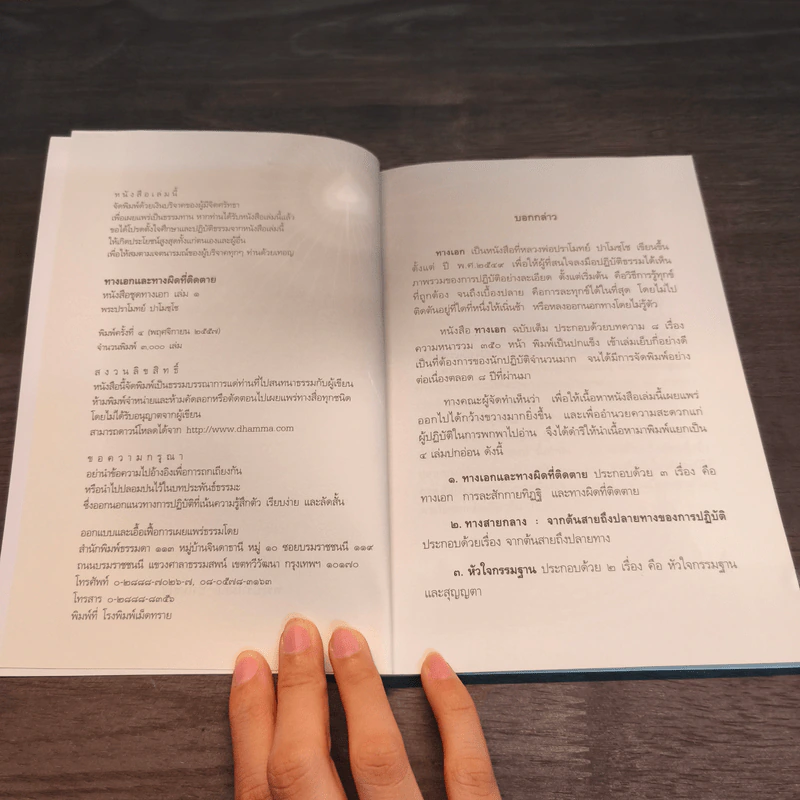 ห นั ง สื อ เ ล่ ม นี้
จัดพิมพ์ด้วยเงินบริจาคของผู้มีจิตศรัทธา
เพื่อเผยแพร่เป็นธรรมทาน หากท่านได้รับหนังสือเล่มนี้แล้ว
ขอได้โปรดตั้งใจศึกษาและปฏิบัติธรรมจากหนังสือเล่มนี้
ให้เกิดประโยชน์สูงสุดทั้งแก่ตนเองและผู้อื่น
เพื่อให้สมตามเจตนารมณ์ของผู้บริจาคทุกๆ ท่านด้วยเทอญ
ทางเอกและทางผิดที่ติดตาย
หนังสือชุดทางเอก เล่ม ๑
พระปราโมทย์ ปาโมชฺโช
พิมพ์ครั้งที่ ๔ (พฤศจิกายน ๒๕๕๗)
จำนวนพิมพ์ ๓,๐๐๐ เล่ม
ส ง ว น ลิ ข สิ ท ธิ์
หนังสือนี้จัดพิมพ์เป็นธรรมบรรณาการแด่ท่านที่ไปสนทนาธรรมกับผู้เขียน
ห้ามพิมพ์จำหน่ายและห้ามคัดลอกหรือตัดตอนไปเผยแพร่ทางสื่อทุกชนิด
โดยไม่ได้รับอนุญาตจากผู้เขียน
สามารถดาวน์โหลดได้จาก http://www.dhamma.com
ข อ ค ว า ม ก รุ ณ า
อย่านำข้อความไปอ้างอิงเพื่อการถกเถียงกัน
หรือนำไปปลอมปนไว้ในบทประพันธ์ธรรมะ
ซึ่งออกนอกแนวทางการปฏิบัติที่เน้นความรู้สึกตัว เรียบง่าย และลัดสั้น
ออกแบบและเอื้อเฟื้อการเผยแพร่ธรรมโดย
สำนักพิมพ์ธรรมดา ๑๑๓ หมู่บ้านจินดาธานี หมู่ ๑๐ ซอยบรมราชชนนี ๑๑๙
ถนนบรมราชชนนี แขวงศาลาธรรมสพน์ เขตทวีวัฒนา กรุงเทพฯ ๑๐๑๗๐
โทรศัพท์ ๐-๒๘๘๘-๗๐๒๖-๗, ๐๘-๐๕๗๘-๓๑๖๓
โทรสาร ๐-๒๘๘๘-๘๓๕๖
พิมพ์ที่ โรงพิมพ์เม็ดทราย
บอกกล่าว
ทางเอก เป็นหนังสือที่หลวงพ่อปราโมทย์ ปาโมชฺโช เขียนขึ้น
ตั้งแต่ ปี พ.ศ.๒๕๔๙ เพื่อให้ผู้ที่สนใจลงมือปฏิบัติธรรมได้เห็น
ภาพรวมของการปฏิบัติอย่างละเอียด ตั้งแต่เริ่มต้น คือวิธีการรู้ทุกข์
ที่ถูกต้อง จนถึงเบื้องปลาย คือการละทุกข์ได้ในที่สุด โดยไม่ไป
ติดตันอยู่ที่ใดที่หนึ่งให้เนิ่นช้า หรือหลงออกนอกทางโดยไม่รู้ตัว
หนังสือ ทางเอก ฉบับเต็ม ประกอบด้วยบทความ ๘ เรื่อง
ความหนารวม ๓๕๐ หน้า พิมพ์เป็นปกแข็ง เข้าเล่มเย็บกี่อย่างดี
เป็นที่ต้องการของนักปฏิบัติจำนวนมาก จนได้มีการจัดพิมพ์อย่าง
ต่อเนื่องตลอด ๘ ปีที่ผ่านมา
ทางคณะผู้จัดทำเห็นว่า เพื่อให้เนื้อหาหนังสือเล่มนี้เผยแพร่
ออกไปได้กว้างขวางมากยิ่งขึ้น และเพื่ออำนวยความสะดวกแก่
ผู้ปฏิบัติในการพกพาไปอ่าน จึงได้ดำริให้นำเนื้อหามาพิมพ์แยกเป็น
๔ เล่มปกอ่อน ดังนี้
๑. ทางเอกและทางผิดที่ติดตาย ประกอบด้วย ๓ เรื่อง คือ
ทางเอก การละสักกายทิฏฐิ และทางผิดที่ติดตาย
๒. ทางสายกลาง : จากต้นสายถึงปลายทางของการปฏิบัติ
ประกอบด้วยเรื่อง จากต้นสายถึงปลายทาง
๓. หัวใจกรรมฐาน ประกอบด้วย ๒ เรื่อง คือ หัวใจกรรมฐาน
และสุญญตา